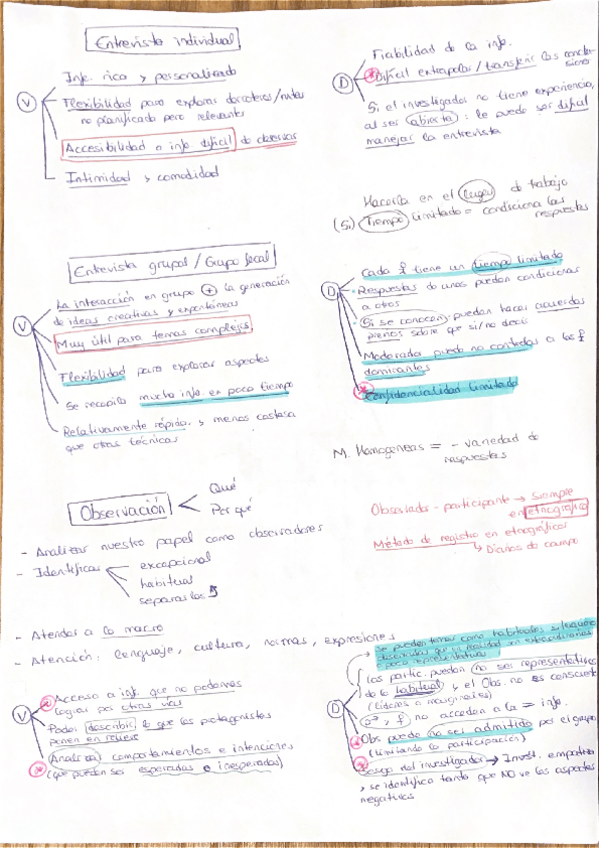 Entrevista individual
V
Info. rica y personalizada
Flexibilidad para explorar derroteros/rutas
no planificado pero relevantes
Accesibilidad a info difícil de observar
Intimidad y comodidad
D
Fiabilidad de la info.
Difícil extrapolar/transferir las conclu-
siones
Si el investigador no tiene experiencia,
al ser abierta: le puede ser difícil
manejar la entrevista
Hacerla en el lugar de trabajo
(Si) Tiempo limitado = condiciona las
respuestas
Entrevista grupal / Grupo focal
V
La interacción en grupo + la generación
de ideas creativas y espontáneas
Muy útil para temas complejos
Flexibilidad para explorar aspectos
Se recopila mucha info. en poco tiempo
Relativamente rápida, y menos costosa
que otras técnicas
D
Cada f tiene un tiempo limitado
Respuestas de unos pueden condicionar
a otros
Si se conocen: pueden hacer acuerdos
previos sobre que si/no decir
Moderador puede no controlar a los f
dominantes
Confidencialidad limitada
M. Homogéneas = - variedad de
respuestas
Observación
Qué
Por qué
- Analizar nuestro papel como observadores
- Identificar
excepcional
habitual
separarlos
Observador - participante → siempre
en etnográfico
Método de registro en etnográficos
Diarios de campo
- Atender a lo macro
- Atención: lenguaje, cultura, normas, expresiones
V
Acceso a info. que no podríamos
lograr por otras vías
Poder describir lo que los protagonistas
ponen en relieve
Analizar comportamientos e intenciones
(que puedan ser esperadas e inesperadas)
D
Se pueden tomar como habituales
poco representativas
Los partic. pueden no ser representativos
de lo habitual y el Obs. no es consciente
(Líderes o marginales)
no accedan a la = info.
Obs puede no ser admitido por el grupo
(limitando la participación)
Sesgo del investigador → Invest. empatiza
y se identifica tanto que NO ve los aspectos
negativos